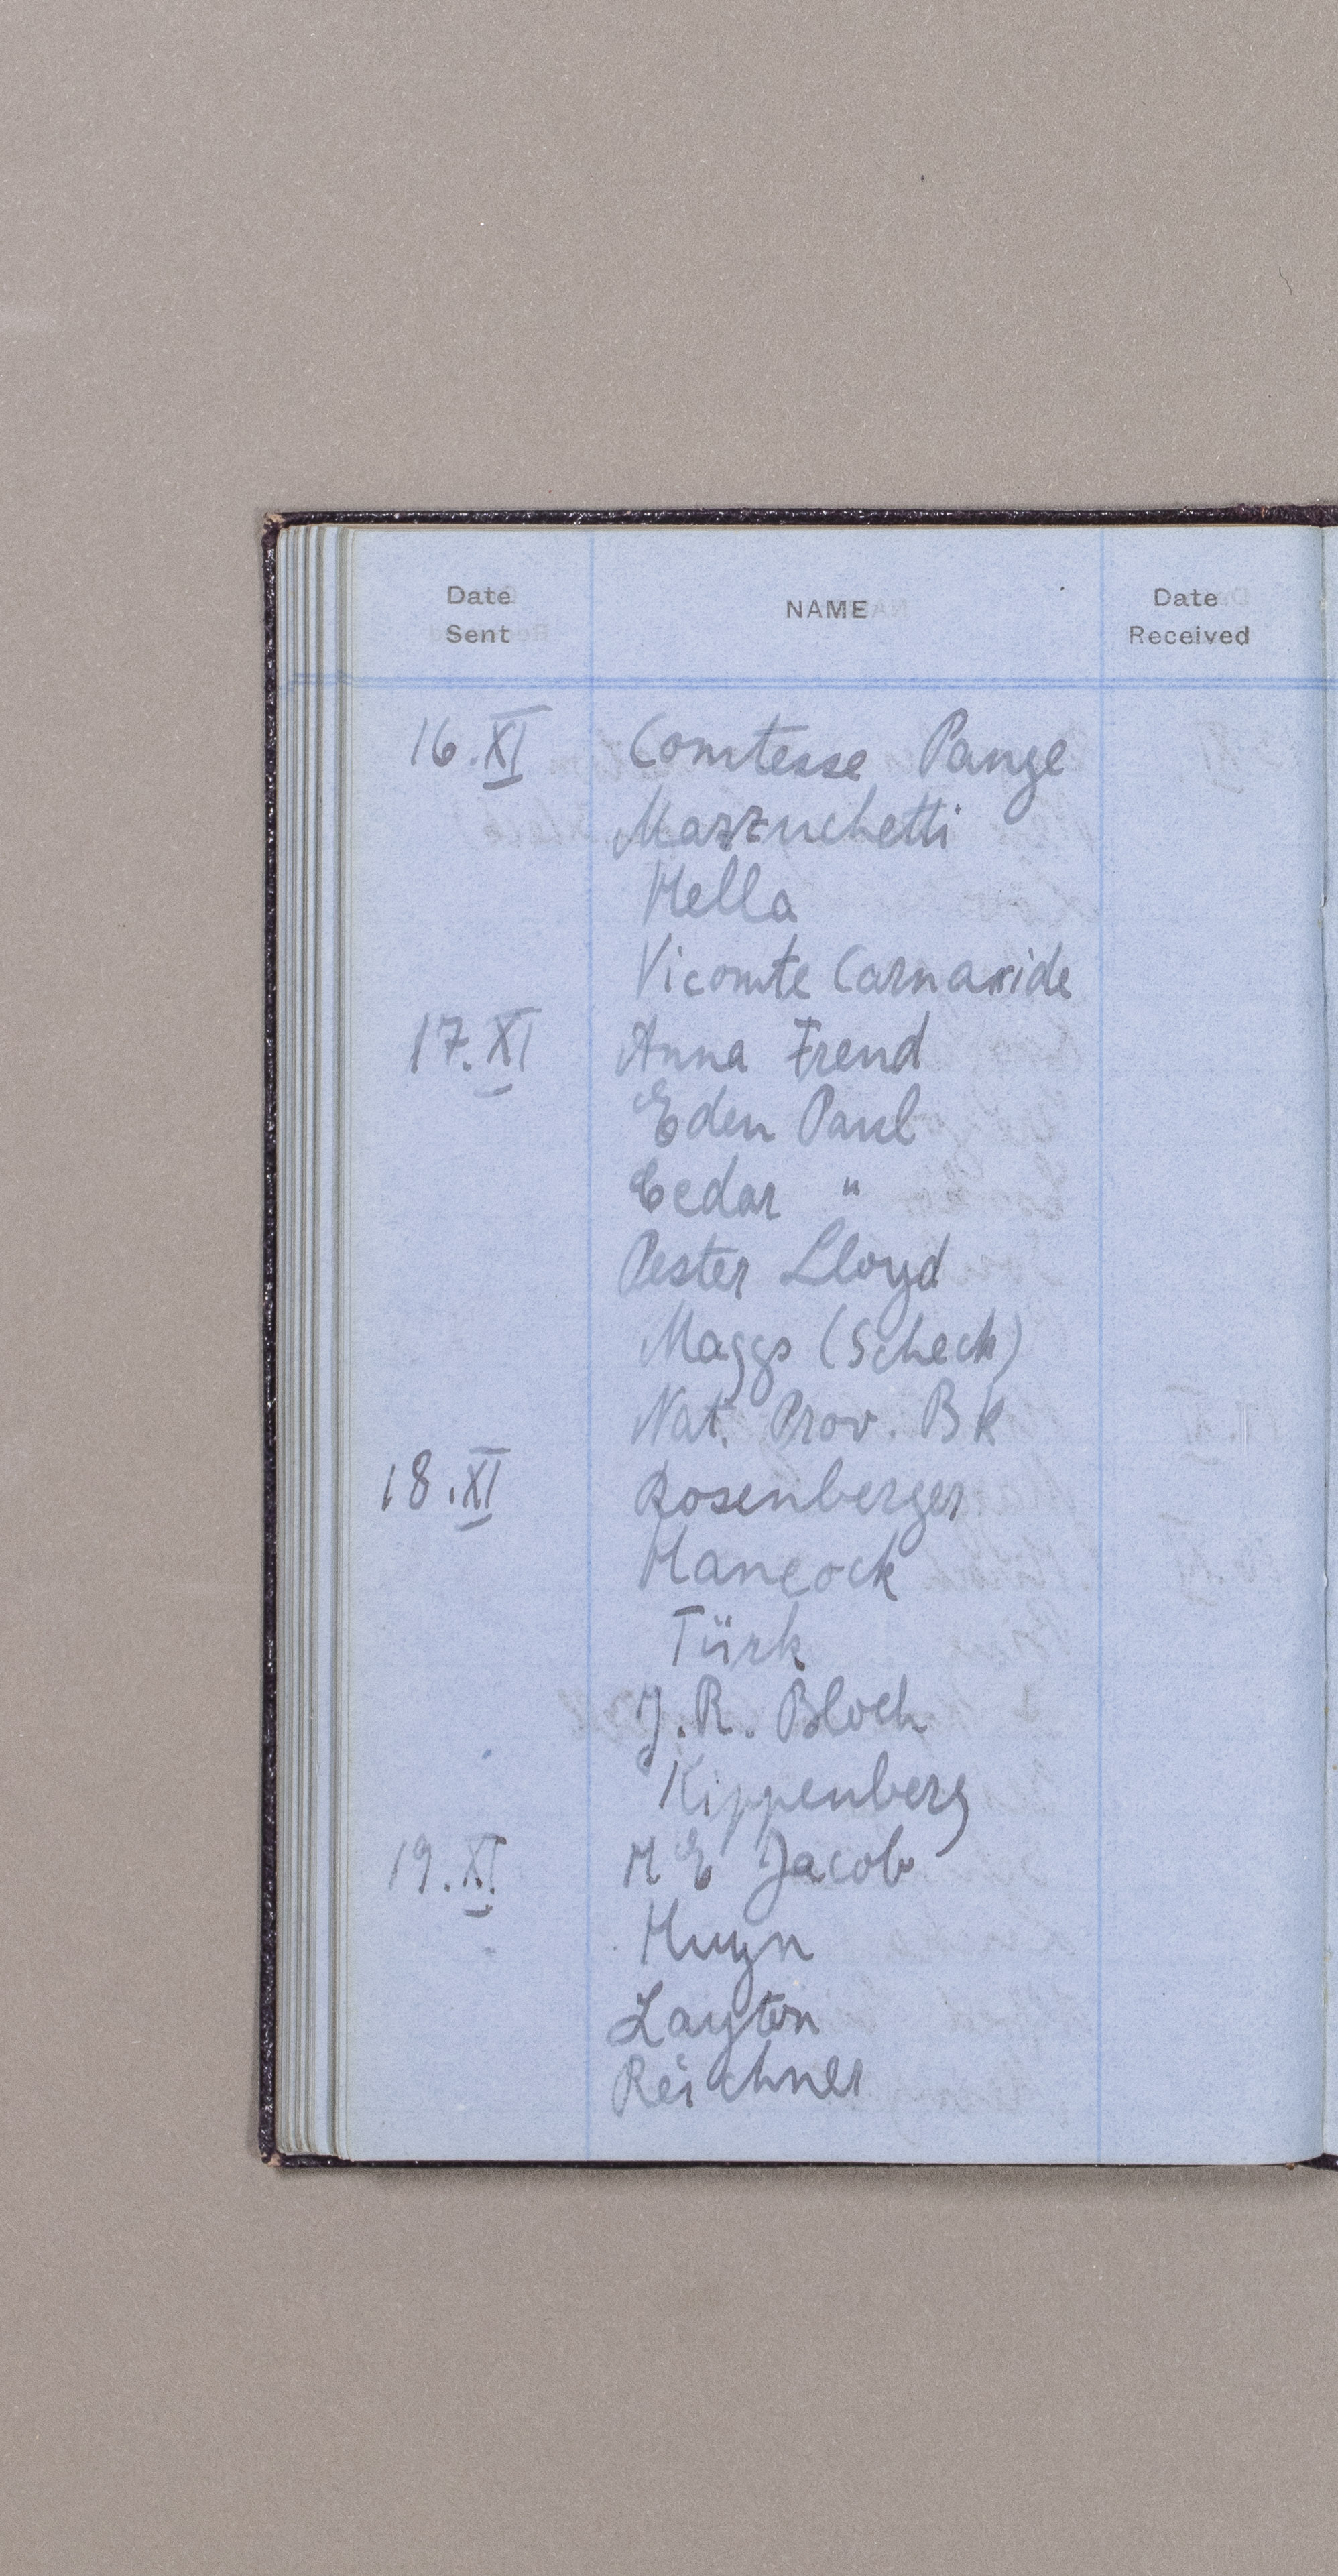 Date Sent NAME Date Received
16.XI Comtesse Pange
Mazzuchetti
Hella
Vicomte Carnaxide
17.XI Anna Freud
Eden Paul
Cedar "
Pester Lloyd
Maggs (Scheck)
Nat. Prov. Bk
18.XI Rosenberger
Hancock
Türk
J. R. Bloch
Kippenberg
19.XI H E Jacob
Huyn
Layton
Reichner